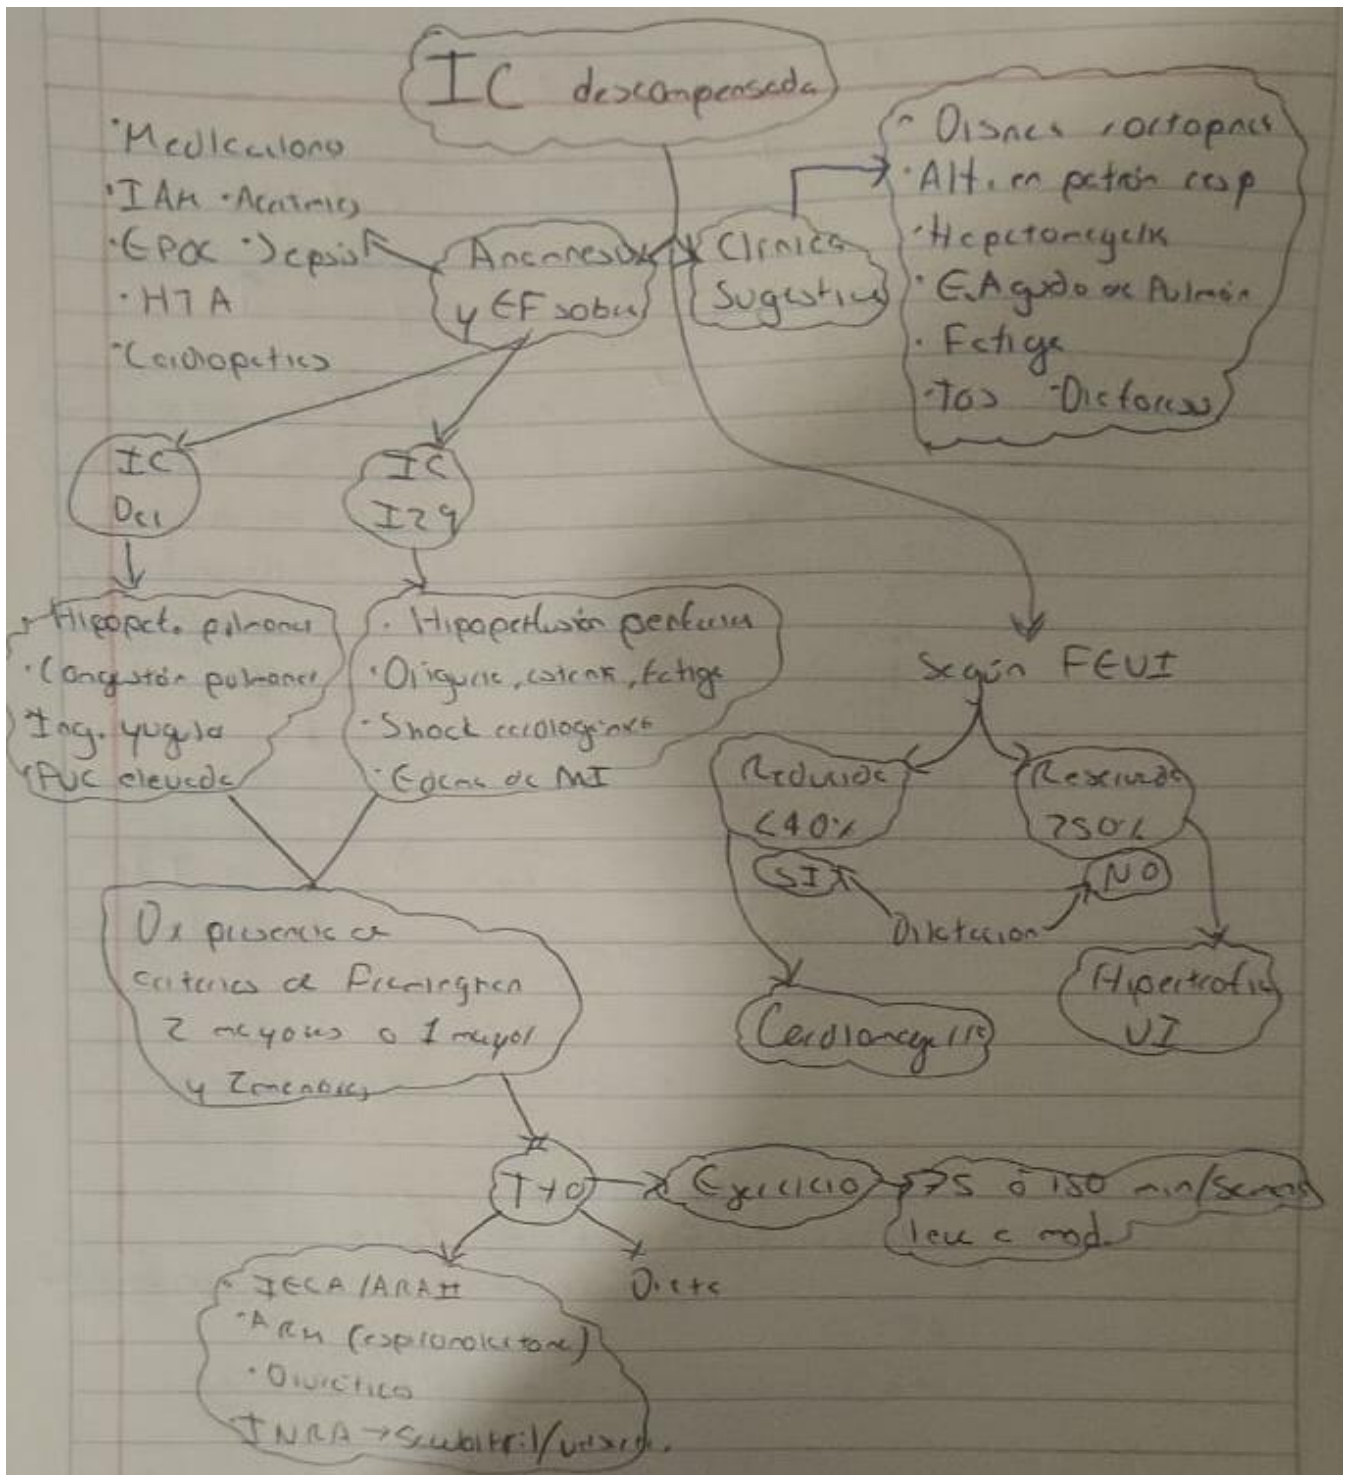 IC descompensada
· Medicaciono
· IAM · Acatmies
· EPOC · Sepsis
· HTA
· Cardiopatias
Anamnesis
y EF sobre
Clinica
Sugestiva
· Disnea, ortopnea
· Alt. en patrón resp
· Hepatomegalia
· E. Agudo de Pulmón
· Fatiga
· Tos · Diaforesis
IC
Der
IC
Izq
· Hipoperf. pulmonar
· Congestión pulmonar
Ing. yugula
PVC elevada
· Hipoperfusión periferica
· Oliguria, astenia, fatiga
· Shock cardiogénico
· Edema de MI
Según FEVI
Reducida
<40%
SI
Reservada
>50%
NO
Dilatacion
Cardiomegalia
Hipertrofia
VI
Dx presencia de
criterios de Framingham
2 mayores o 1 mayor
y 2 menores
Tto
Ejercicio
75 ó 150 min/semana
leve a mod.
Dieta
· IECA/ARAII
· ARM (espironolactona)
· Diurético
INRA → Sacubitril/valsart.